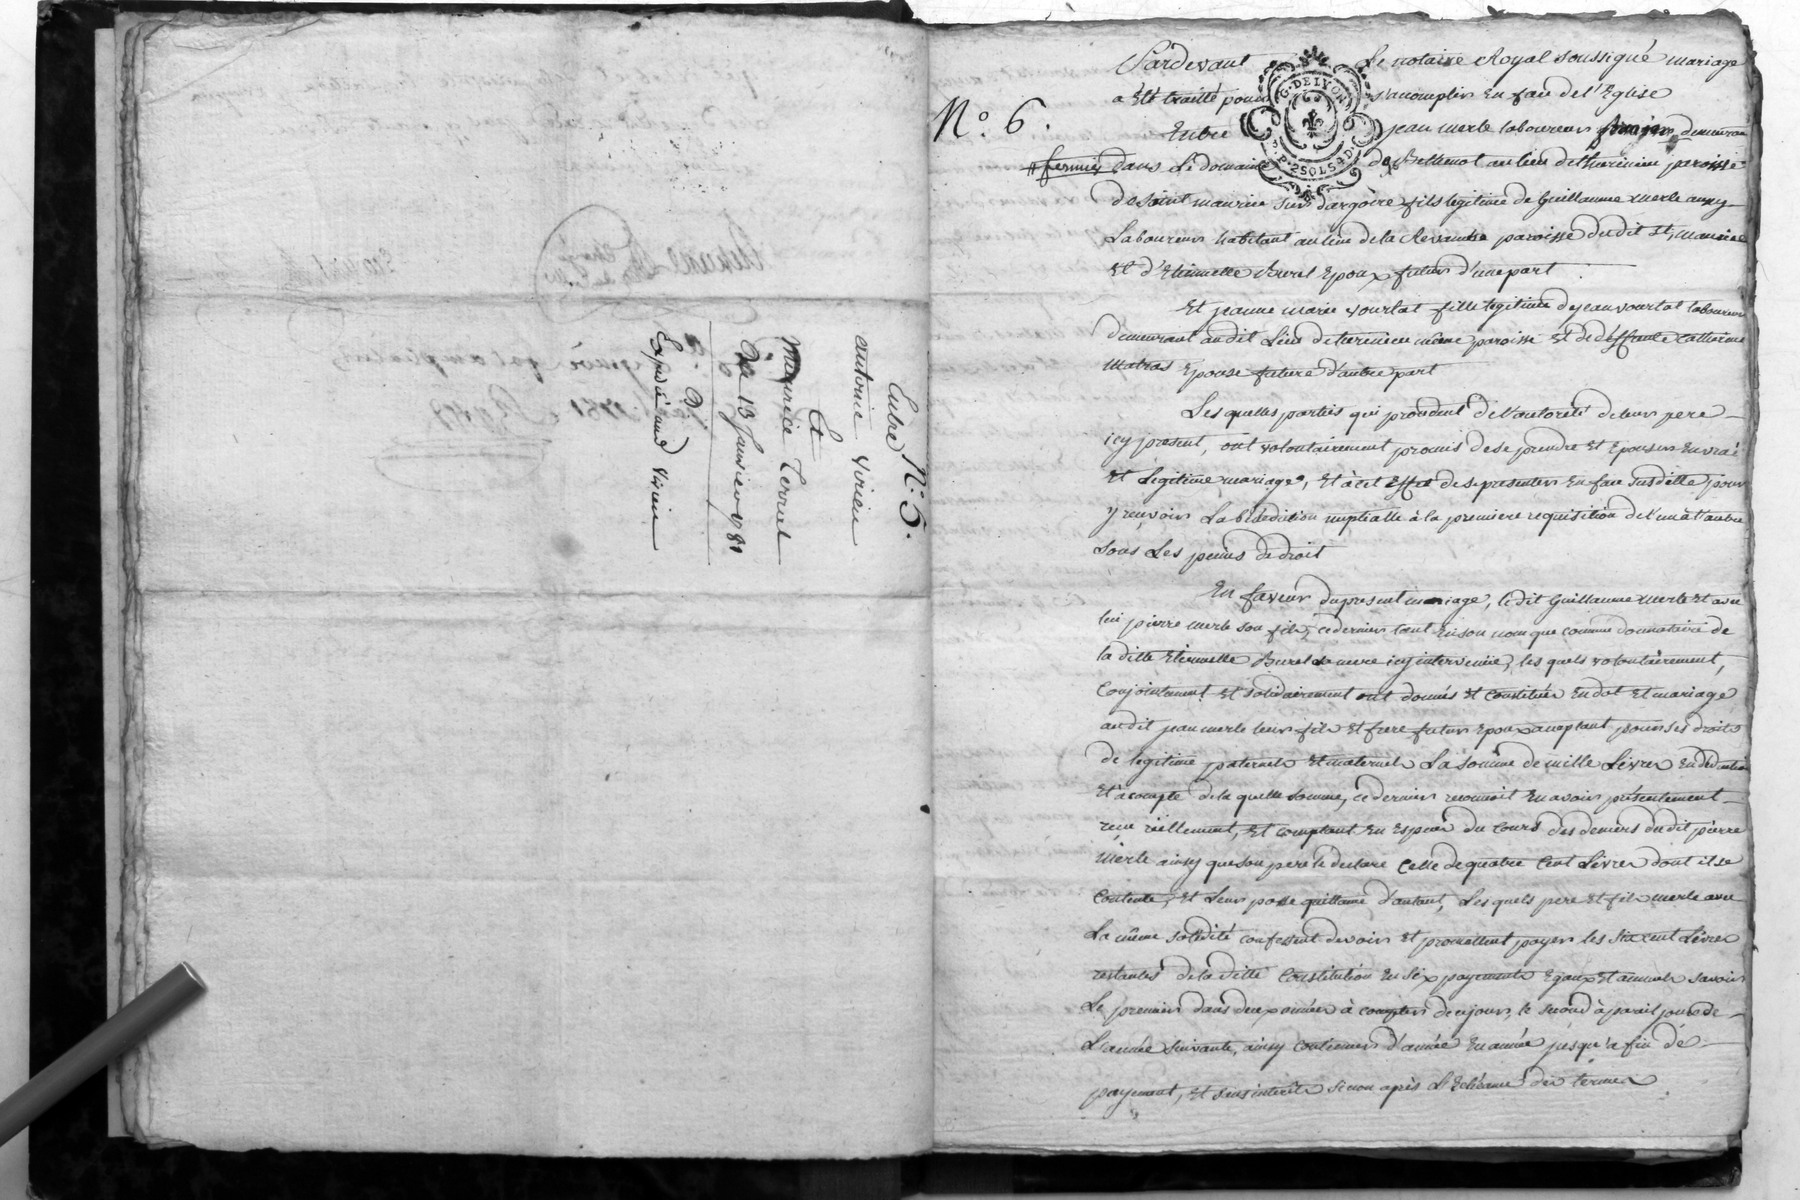 N.° 5.
Entre
antoine virieu
Et
Maurice Terrut
Du 13 Janvier 1781
Expedié aud virieu
N.° 6.
Pardevant Le notaire Royal soussigné mariage
a Eté traitté pour s'accomplir En face de l'Eglise
G. DE LYON
2 SOLS 4 D.
Entre jean merle laboureur demeurant
# fermier dans Le domaine de Bellenot au lieu de thurinieu paroisse
de saint maurice sur dargoire fils legitime de Guillaume merle aussy
Laboureur habitant au lieu de la Revandre paroisse du dit St. maurice
Et d'Etiennette Burel Epoux futur d'une part
Et jeanne marie vourlat fille legitime de jean vourlat laboureur
demeurant au dit Lieu de thurinieu même paroisse Et de deffunte catherine
matras Epouse future d'autre part
Les quelles parties qui procedent de l'autorité de leur pere
icy present, ont volontairement promis de se prendre Et Epouser En vrai
Et Legitime mariage, Et à cet Effet de se presenter En face susditte pour
y recevoir La bénédiction nuptialle à la premiere requisition de l'un à l'autre
sous Les peines de droit
En faveur du present mariage, le dit Guillaume merle Et avec
lui pierre merle son fils, ce dernier tant En son nom que comme donnataire de
la ditte Etiennette Burel sa mere icy intervenüe, les quels volontairement,
Conjointement Et solidairement ont donnés Et constitués En dot Et mariage
au dit jean merle leur fils Et frere futur Epoux acceptant pour ses droits
de legitime paternels Et maternels La somme de mille Livres En déduction
Et à compte de la quelle somme, ce dernier reconnoit En avoir présentement
reçu réellement, Et comptant En Especes du cours des deniers du dit pierre
Merle ainsy que son pere le declare celle de quatre Cent Livres dont il se
Contente, Et Leur passe quittance d'autant, Les quels pere Et fils merle avec
La même solidité confessent devoir Et promettent payer les six cent Livres
restantes de la ditte Constitution En six payements Egaux Et annuels savoir
Le premier dans deux années à compter de ce jour, le second à pareil jour de
L'année suivante, ainsy continuer d'année En année jusqu'a fin de
payement, Et sans intérêts sinon après L'Echéance des termes